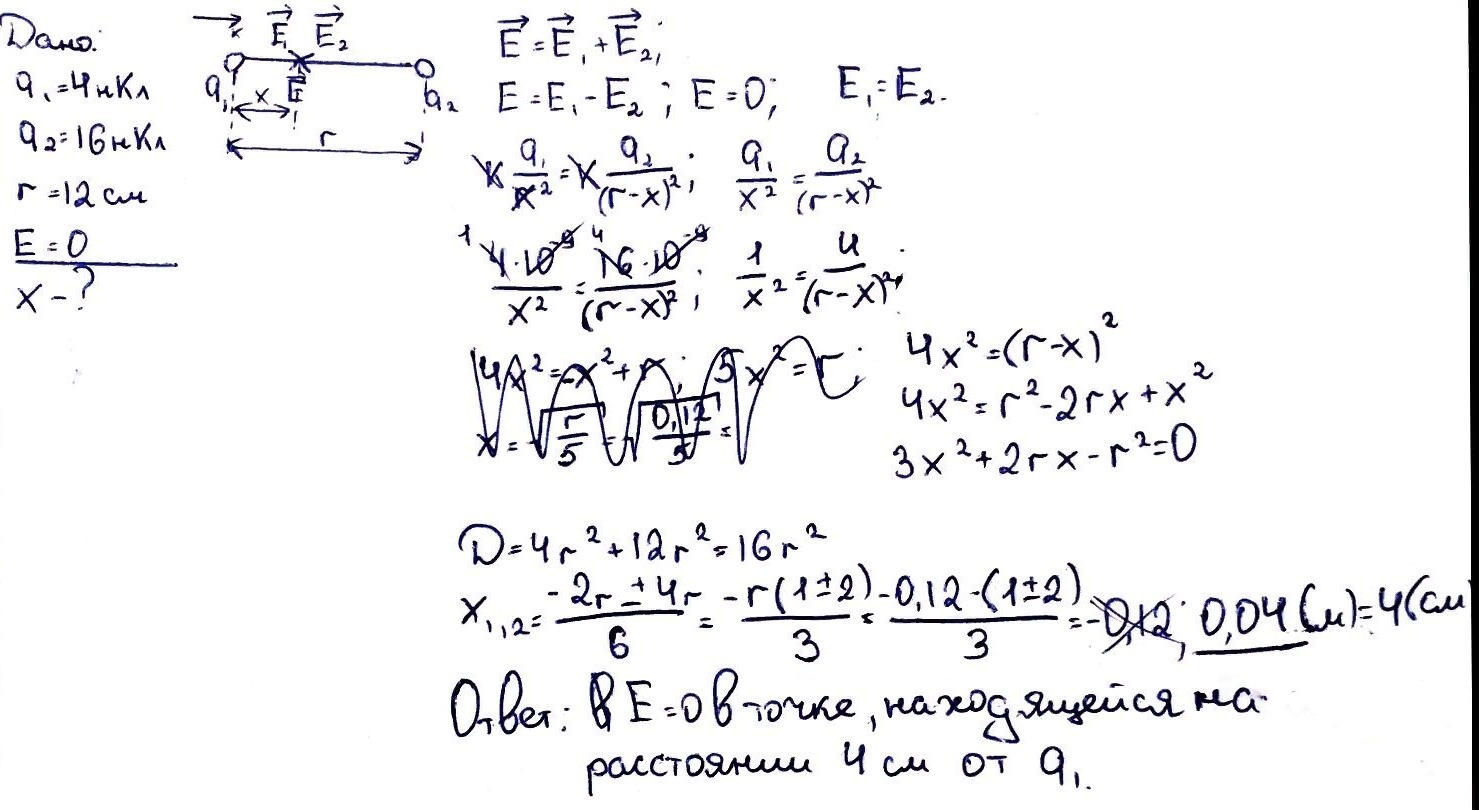 Дано:
q₁=4нКл
q₂=16нКл
r=12см
E=0
x-?
x E⃗₁ E⃗₂
q₁ x E q₂
r
E⃗=E⃗₁+E⃗₂;
E=E₁-E₂; E=0; E₁=E₂.
k q₁/x²=k q₂/(r-x)²; q₁/x²=q₂/(r-x)²
1 4·10⁻⁹/x²=4 16·10⁻⁹/(r-x)²; 1/x²=4/(r-x)²;
4x²=-x²+r; 5x²=r;
x=√(r/5)=√(0,12/5)=
4x²=(r-x)²
4x²=r²-2rx+x²
3x²+2rx-r²=0
D=4r²+12r²=16r²
x₁,₂=(-2r±4r)/6=-r(1±2)/3=-0,12·(1±2)/3=-0,12; 0,04(м)=4(см
Ответ: E=0 в точке, находящейся на
расстоянии 4 см от q₁.